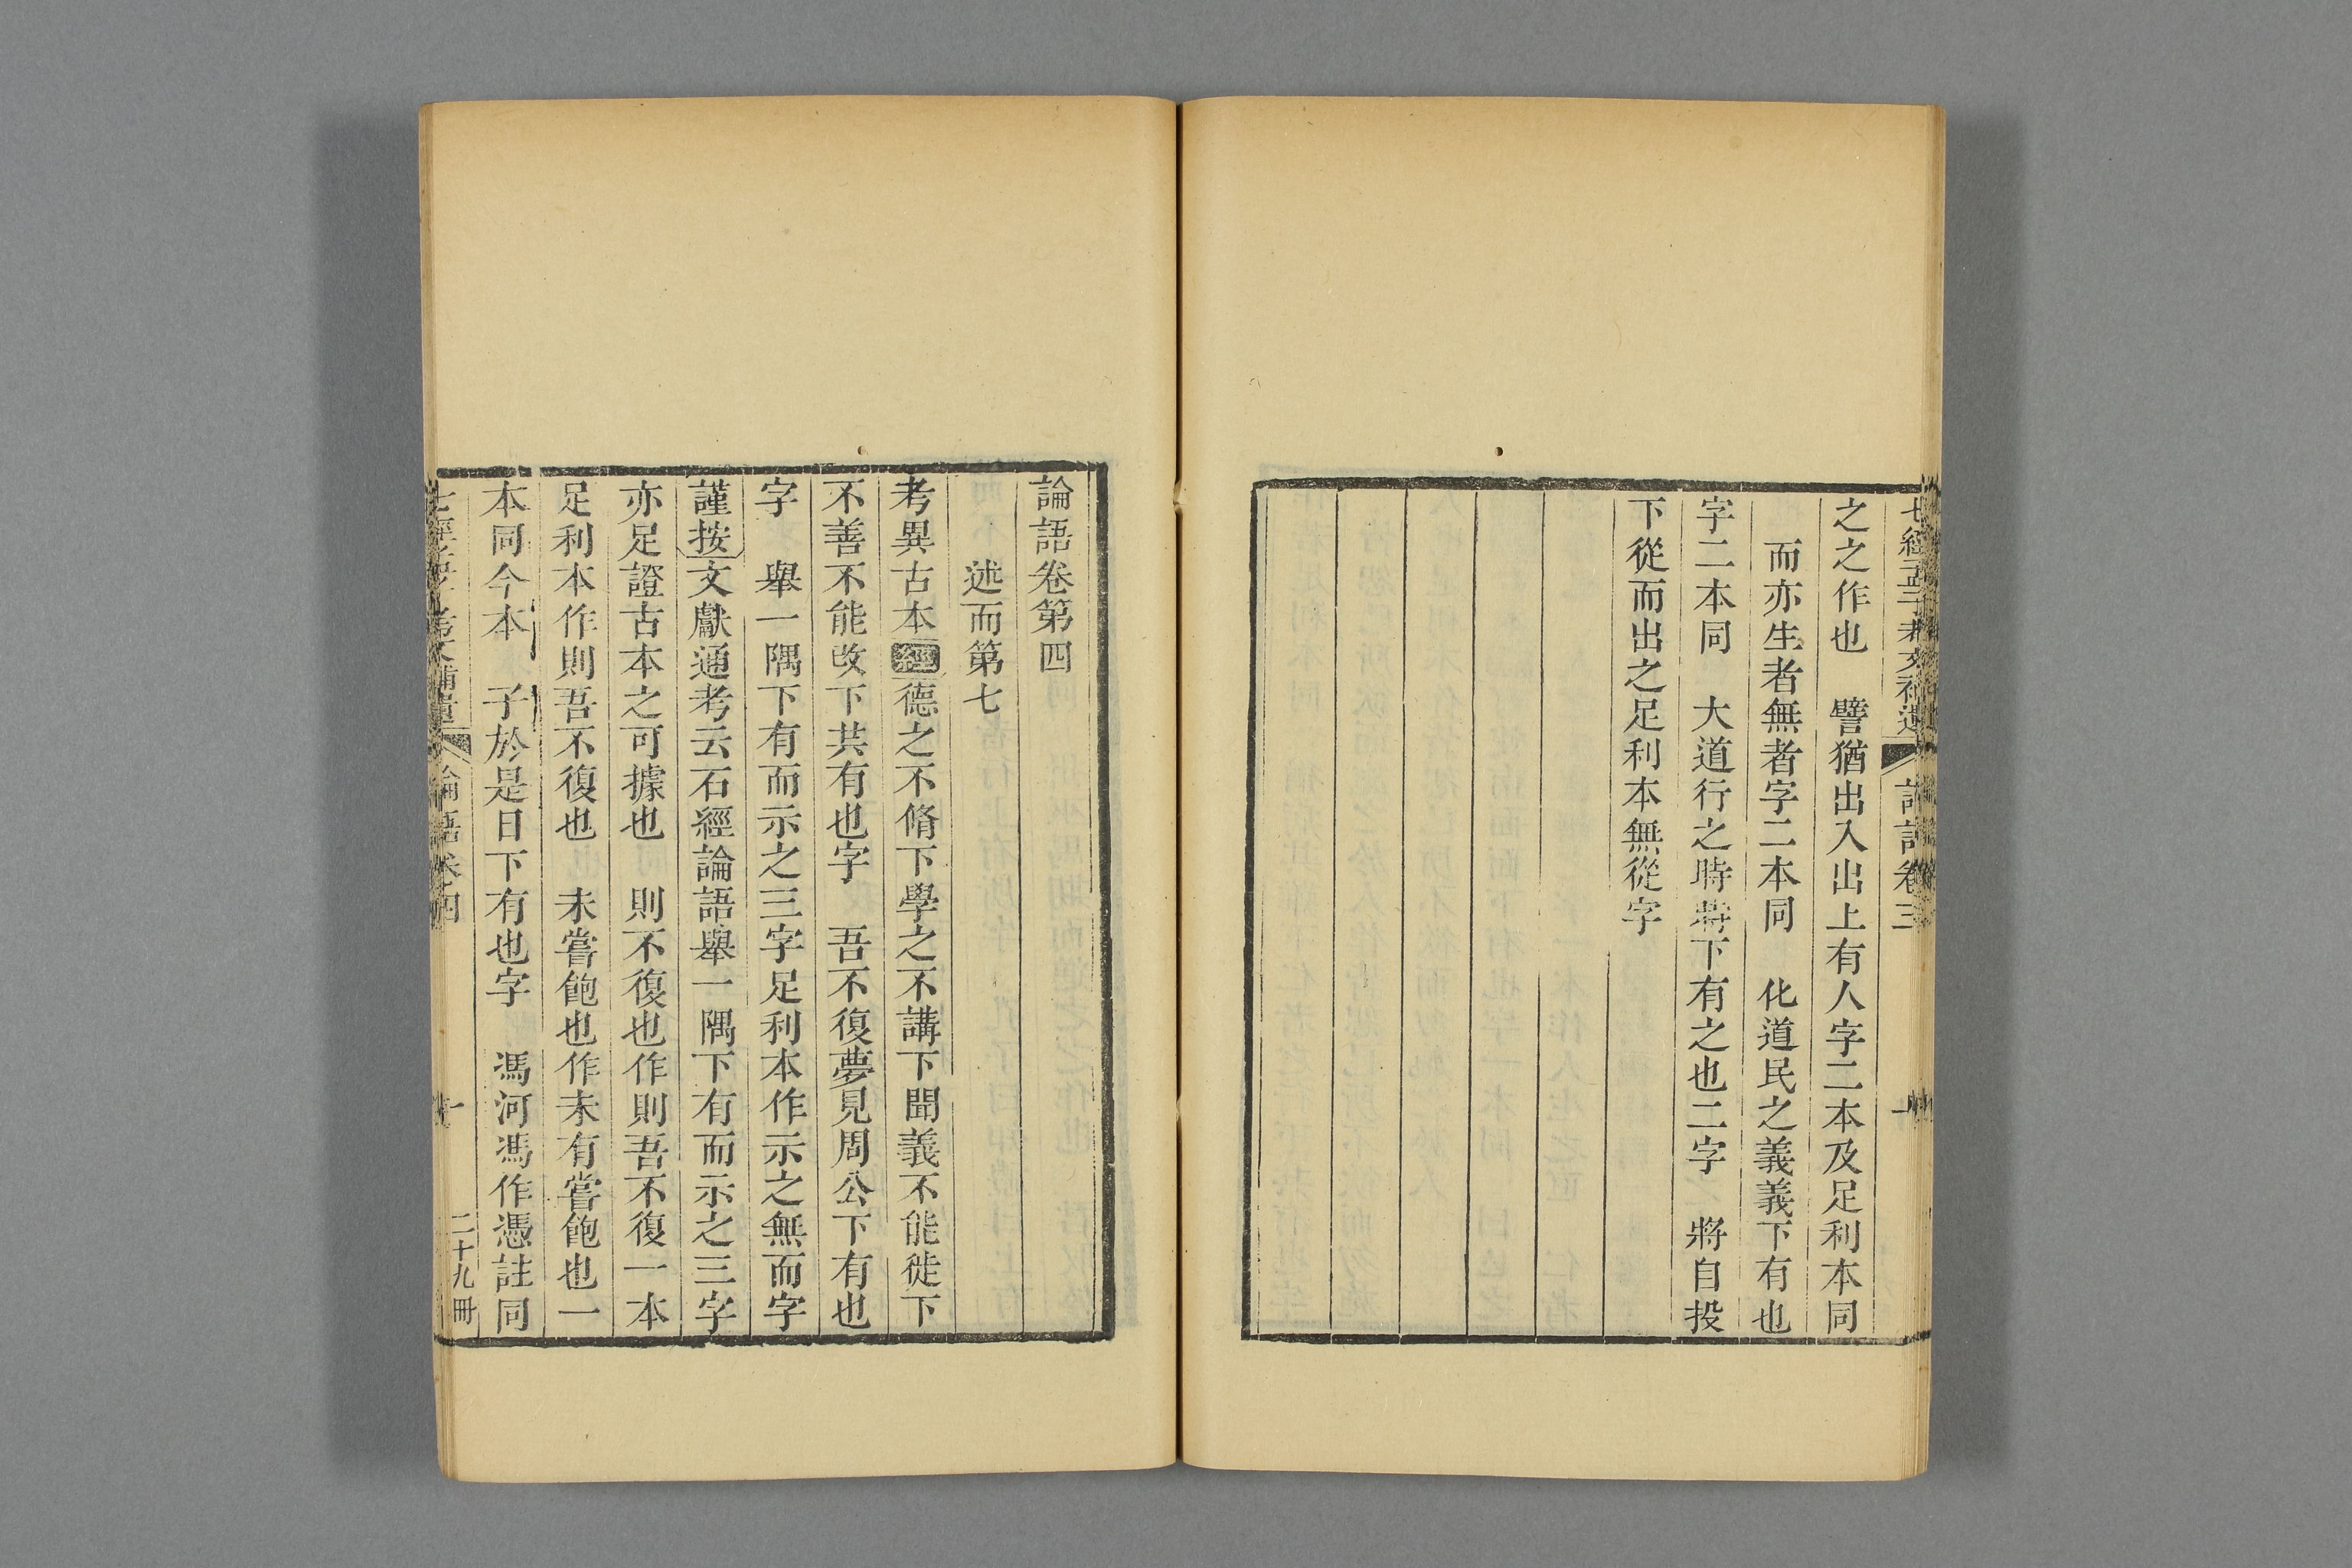 七經孟子考文補遺 論語卷三
之之作也 譬猶出入出上有人字二本及足利本同
而亦生者無者字二本同 化道民之義義下有也
字二本同 大道行之時時下有之也二字 將自投
下從而出之足利本無從字
論語卷第四
述而第七
考異古本經德之不脩下學之不講下聞義不能徙下
不善不能改下共有也字 吾不復夢見周公下有也
字 舉一隅下有而示之三字足利本作示之無而字
謹按文獻通考云石經論語舉一隅下有而示之三字
亦足證古本之可據也 則不復也作則吾不復一本
足利本作則吾不復也 未嘗飽也作未有嘗飽也一
本同今本 子於是日下有也字 馮河馮作憑註同
考文補遺 論語卷四 一 二十九冊